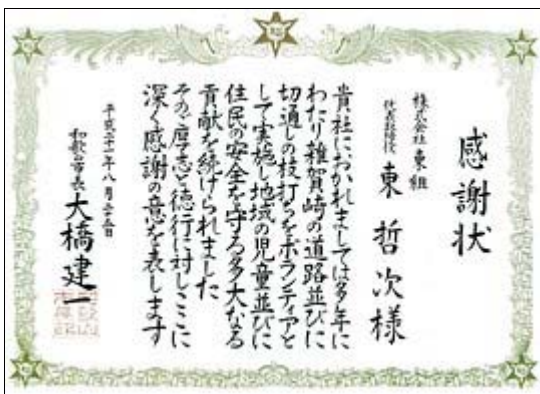 感謝状
株式会社 東組
代表取締役 東 哲次 様
貴社におかれましては多年に
わたり雑賀崎の道路並びに
切通しの枝打ちをボランティアと
して実施し地域の児童並びに
住民の安全を守る多大なる
貢献を続けられました
そのご厚志と徳行に対しここに
深く感謝の意を表します
平成二十一年八月
和歌山市長 大橋建一